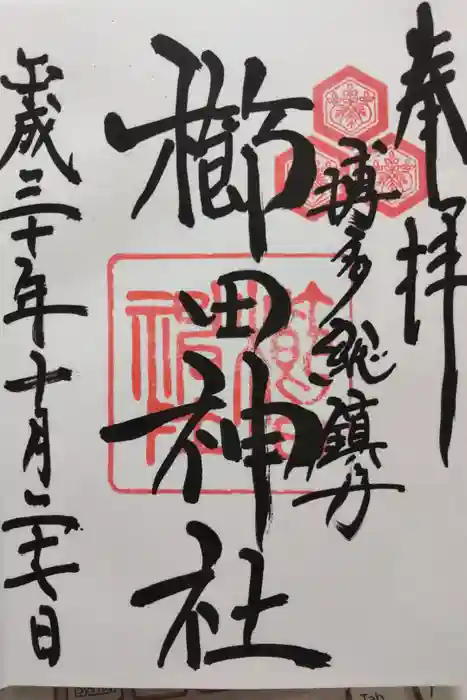 奉拝
博多総鎮守
櫛田神社
平成三十年十月二十七日